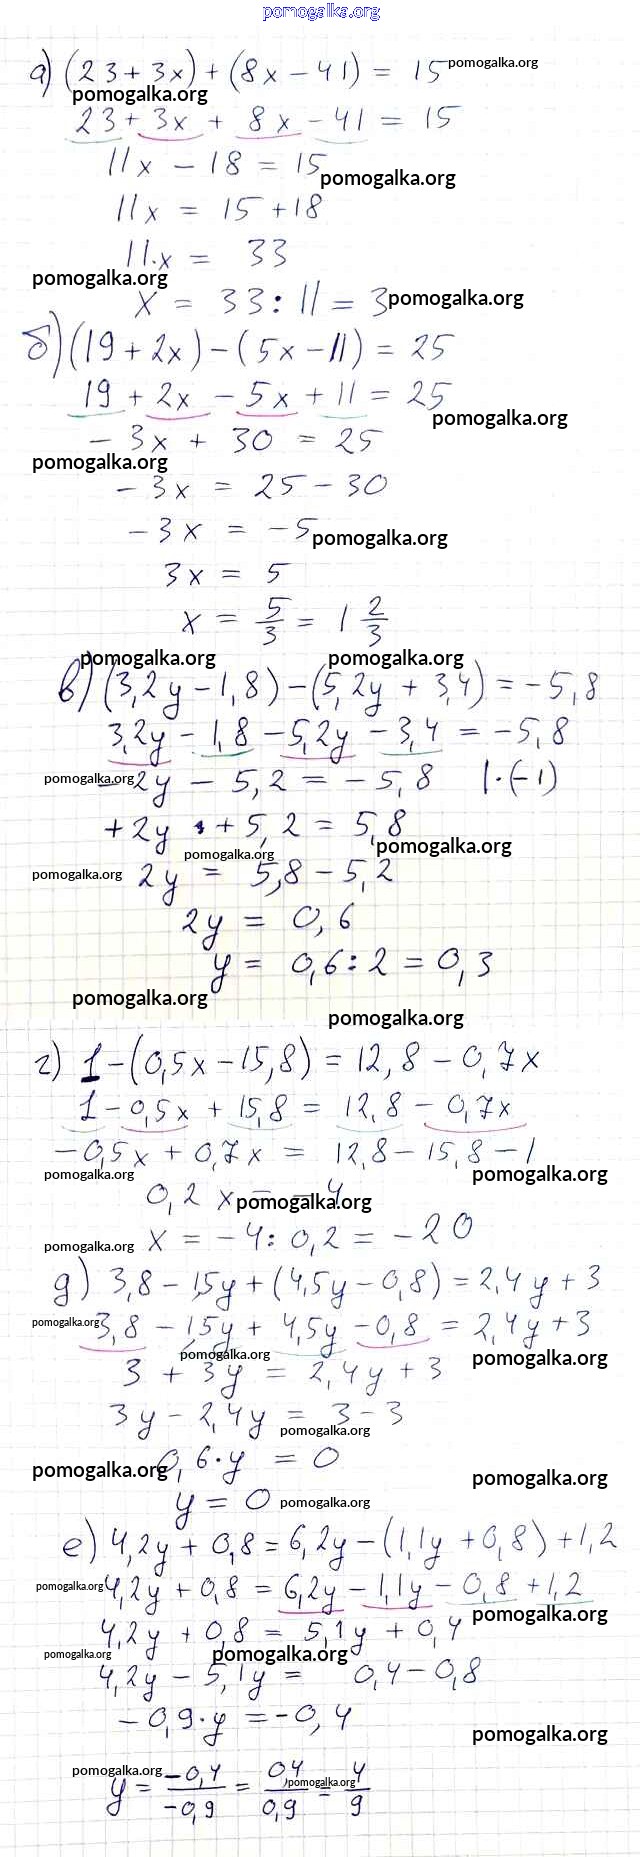 pomogalka.org
а) (23 + 3x) + (8x - 41) = 15 pomogalka.org
pomogalka.org
23 + 3x + 8x - 41 = 15
11x - 18 = 15
pomogalka.org
11x = 15 + 18
11·x = 33
pomogalka.org
x = 33 : 11 = 3 pomogalka.org
б) (19 + 2x) - (5x - 11) = 25
19 + 2x - 5x + 11 = 25
pomogalka.org
- 3x + 30 = 25
pomogalka.org
- 3x = 25 - 30
- 3x = - 5
pomogalka.org
3x = 5
x = 5/3 = 1 2/3
pomogalka.org pomogalka.org
в) (3,2y - 1,8) - (5,2y + 3,4) = -5,8
3,2y - 1,8 - 5,2y - 3,4 = -5,8
pomogalka.org
- 2y - 5,2 = - 5,8 |·(-1)
+ 2y + 5,2 = 5,8
pomogalka.org pomogalka.org
pomogalka.org
2y = 5,8 - 5,2
2y = 0,6
y = 0,6 : 2 = 0,3
pomogalka.org
pomogalka.org
г) 1 - (0,5x - 15,8) = 12,8 - 0,7x
1 - 0,5x + 15,8 = 12,8 - 0,7x
- 0,5x + 0,7x = 12,8 - 15,8 - 1
pomogalka.org pomogalka.org
0,2 x = -4
pomogalka.org
x = - 4 : 0,2 = - 20
pomogalka.org
д) 3,8 - 1,5y + (4,5y - 0,8) = 2,4y + 3
pomogalka.org
3,8 - 1,5y + 4,5y - 0,8 = 2,4y + 3
pomogalka.org pomogalka.org
3 + 3y = 2,4y + 3
3y - 2,4y = 3 - 3
pomogalka.org
0,6·y = 0
pomogalka.org pomogalka.org
y = 0 pomogalka.org
е) 4,2y + 0,8 = 6,2y - (1,1y + 0,8) + 1,2
pomogalka.org
4,2y + 0,8 = 6,2y - 1,1y - 0,8 + 1,2
pomogalka.org
4,2y + 0,8 = 5,1y + 0,4
pomogalka.org pomogalka.org
4,2y - 5,1y = 0,4 - 0,8
- 0,9·y = - 0,4
pomogalka.org
pomogalka.org
y = -0,4/-0,9 = 0,4/0,9 = 4/9
pomogalka.org